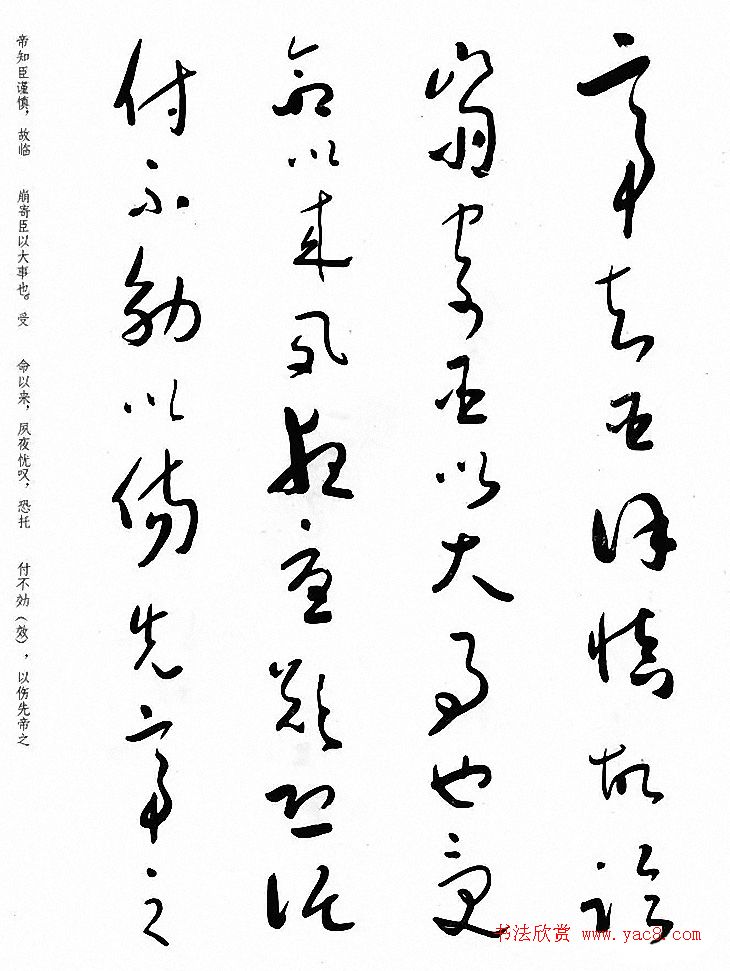 帝知臣謹慎故臨
崩寄臣以大事也受
命以來夙夜憂歎恐託
付不効以傷先帝之
帝知臣谨慎，故临　崩寄臣以大事也。受　命以来，夙夜忧叹，恐托　付不効（效），以伤先帝之
书法欣赏 www.yac8.com